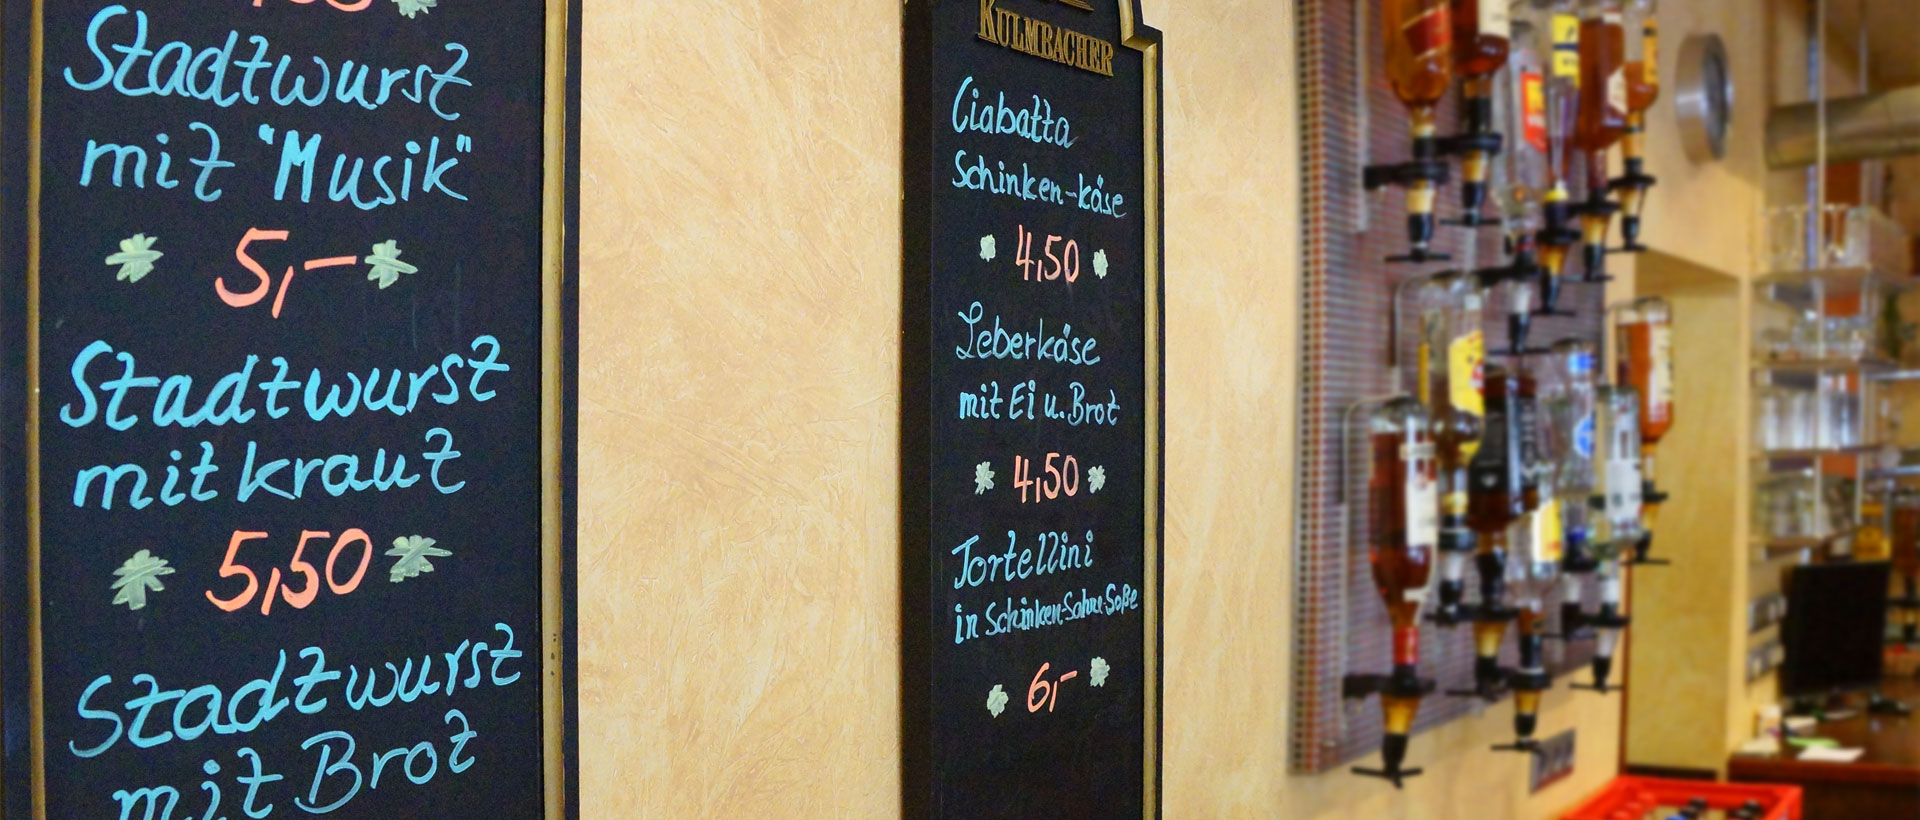 Stadtwurst
mit "Musik"
5,-
Stadtwurst
mit kraut
5,50
Stadtwurst
mit Brot
KULMBACHER
Ciabatta
Schinken-käse
4,50
Leberkäse
mit Ei u. Brot
4,50
Tortellini
in Schinken-Sahne-Soße
6,-